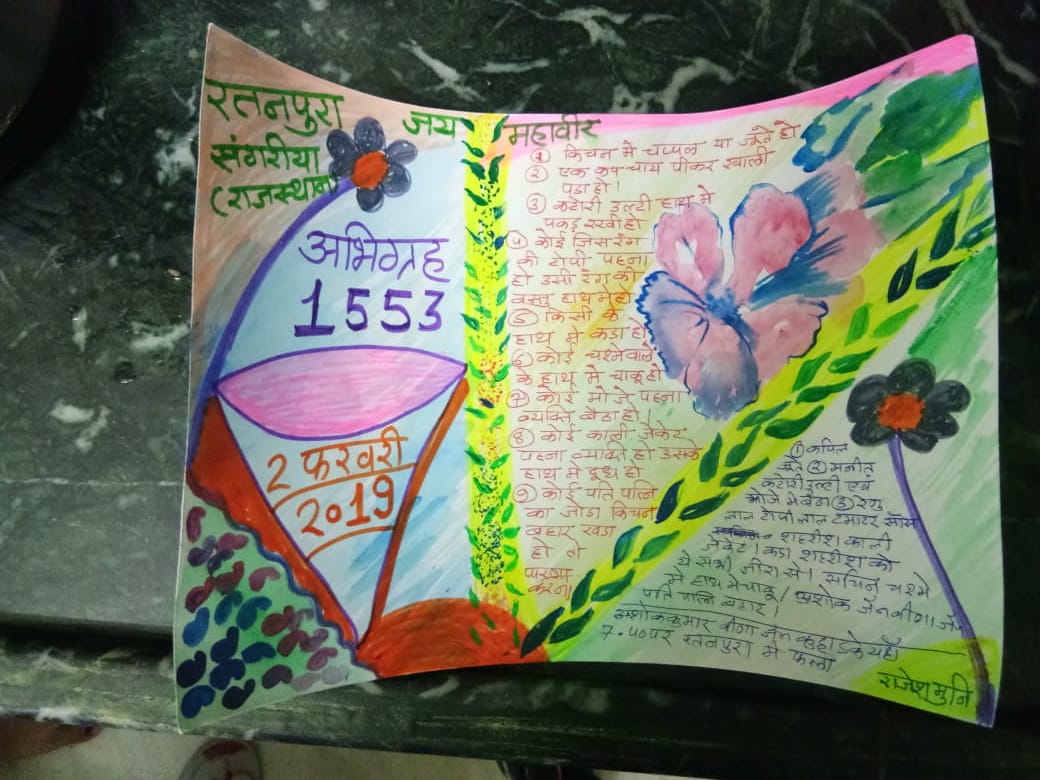 रतनपुरा
संगरीया
(राजस्थान)
जय महावीर
अभिग्रह
1553
2 फरवरी
2019
① किचन मे चप्पल या जूते हो
② एक कप चाय पीकर खाली
पडा हो।
③ कटोरी उल्टी हाथ मे
पकड रखी हो
④ कोई जिस रंग
की टोपी पहना
हो उसी रंग की
वस्तु हाथ मे हो
⑤ किसी के
हाथ मे कडा हो
⑥ कोई चश्मे वाले
के हाथ मे चाकू हो
⑦ कोई मोजे पहना
व्यक्ति बैठा हो।
⑧ कोई काली जेकेट
पहना व्यक्ति हो उसके
हाथ मे दूध हो
⑨ कोई पति पत्नि
का जोडा किचन
बहार खडा
हो तो
पारणा
करना।
① कपिल
जूते ② मनीत
कटोरी उल्टी एवं
मोजे मे बैठा ③ रेणु
लाल टोपी लाल टमाटर सॉस
शहरीश काली
जेकेट। कडा शहरीश को
ये सभी जीरा से। सचिन चश्मे
मे हाथ मे चाकू। अशोक जैन
पति पत्नि बहार।
अशोककुमार जैन के यहाँ
7.50 पर रतनपुरा मे फला
राजेश मुनि